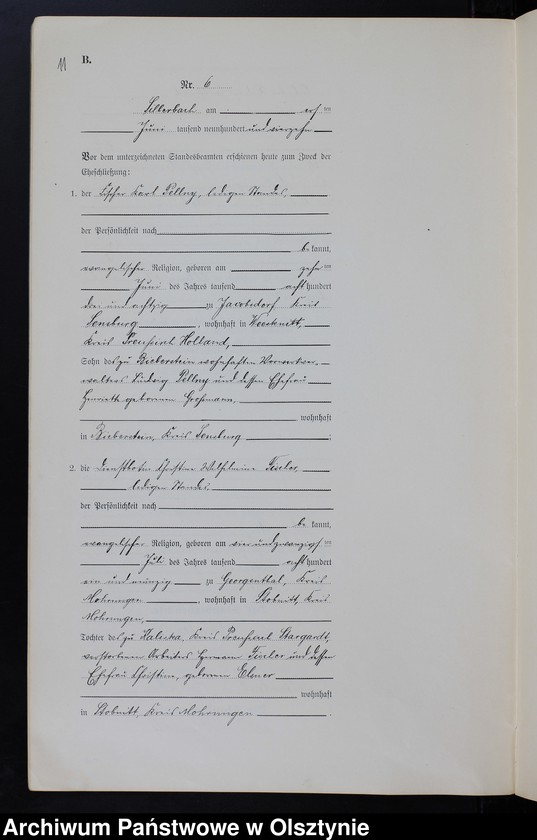 11
B.
Nr. 6
Silberbach am erf ten
Juni tausend neunhundert und vierzehn
Vor dem unterzeichneten Standesbeamten erschienen heute zum Zweck der
Eheschließung:
1. der Fischer Karl Pellny, ledigen Standes,
der Persönlichkeit nach
be kannt,
evangelischer Religion, geboren am zehn ten
Juni des Jahres tausend acht hundert
drei und achtzig zu Jacobsdorf Kreis
Sensburg, wohnhaft in
Kreis Preußisch Holland,
Sohn des zu Bieberstein wohnhaften Vorwerkver-
walters Ludwig Pellny und dessen Ehefrau
Henriette geborenen Großmann,
wohnhaft
in Bieberstein, Kreis Sensburg;
2. die Dienstbotin Christine Wilhelmine
ledigen Standes
der Persönlichkeit nach
be kannt,
evangelischer Religion, geboren am vier und zwanzigs ten
Juli des Jahres tausend acht hundert
ein und neunzig zu Georgenthal, Kreis
Mohrungen, wohnhaft in Stobnitt, Kreis
Mohrungen,
Tochter des zu Kaliska, Kreis Preußisch Stargardt,
verstorbenen Arbeiters Hermann und dessen
Ehefrau Christine, geborenen
wohnhaft
in Stobnitt, Kreis Mohrungen.
Archiwum Państwowe w Olsztynie